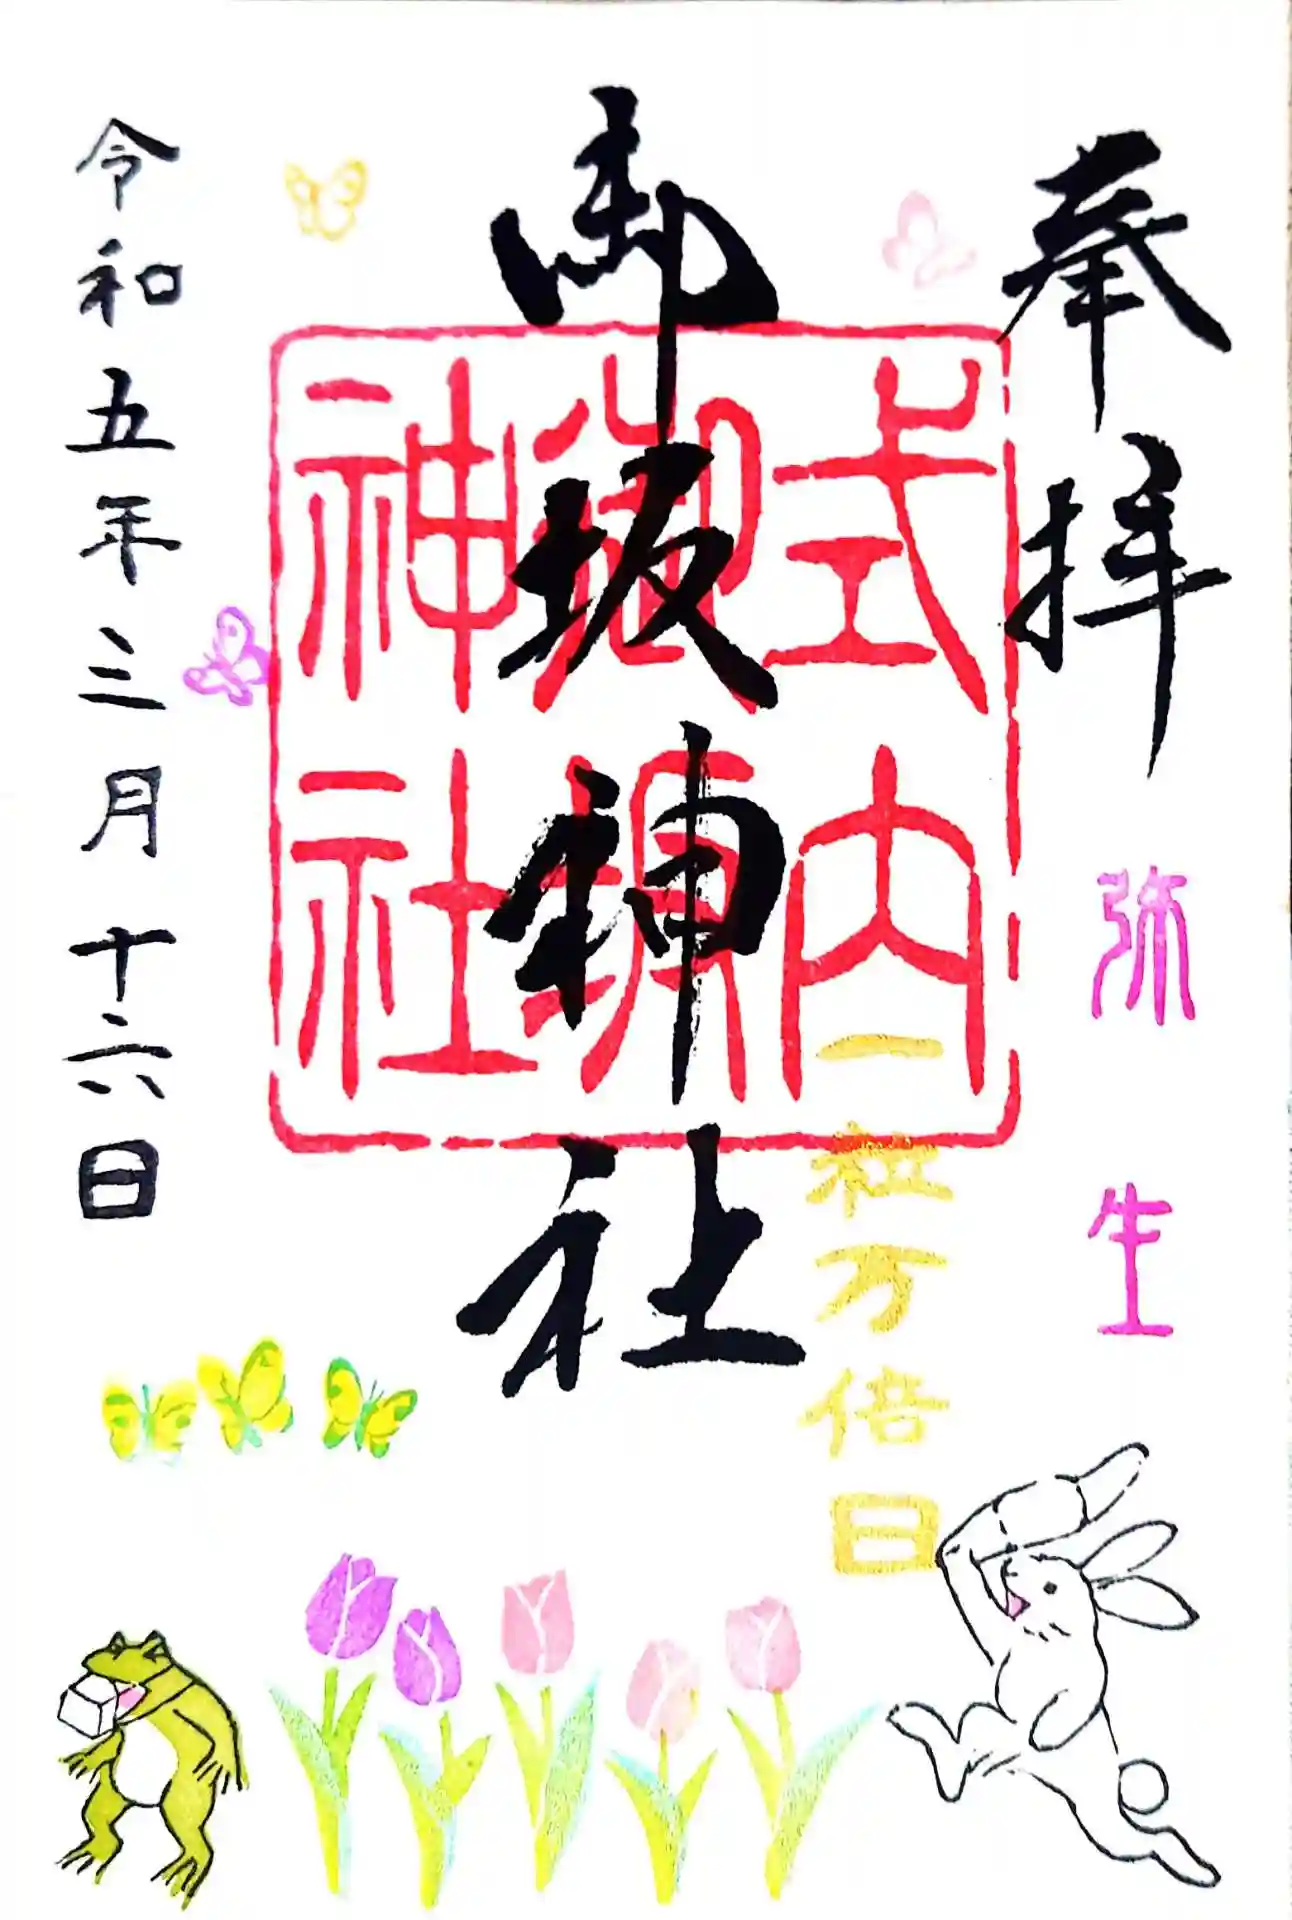 奉拝
弥生
式内
御坂
神社
一粒万倍日
御坂神社
令和五年三月十六日